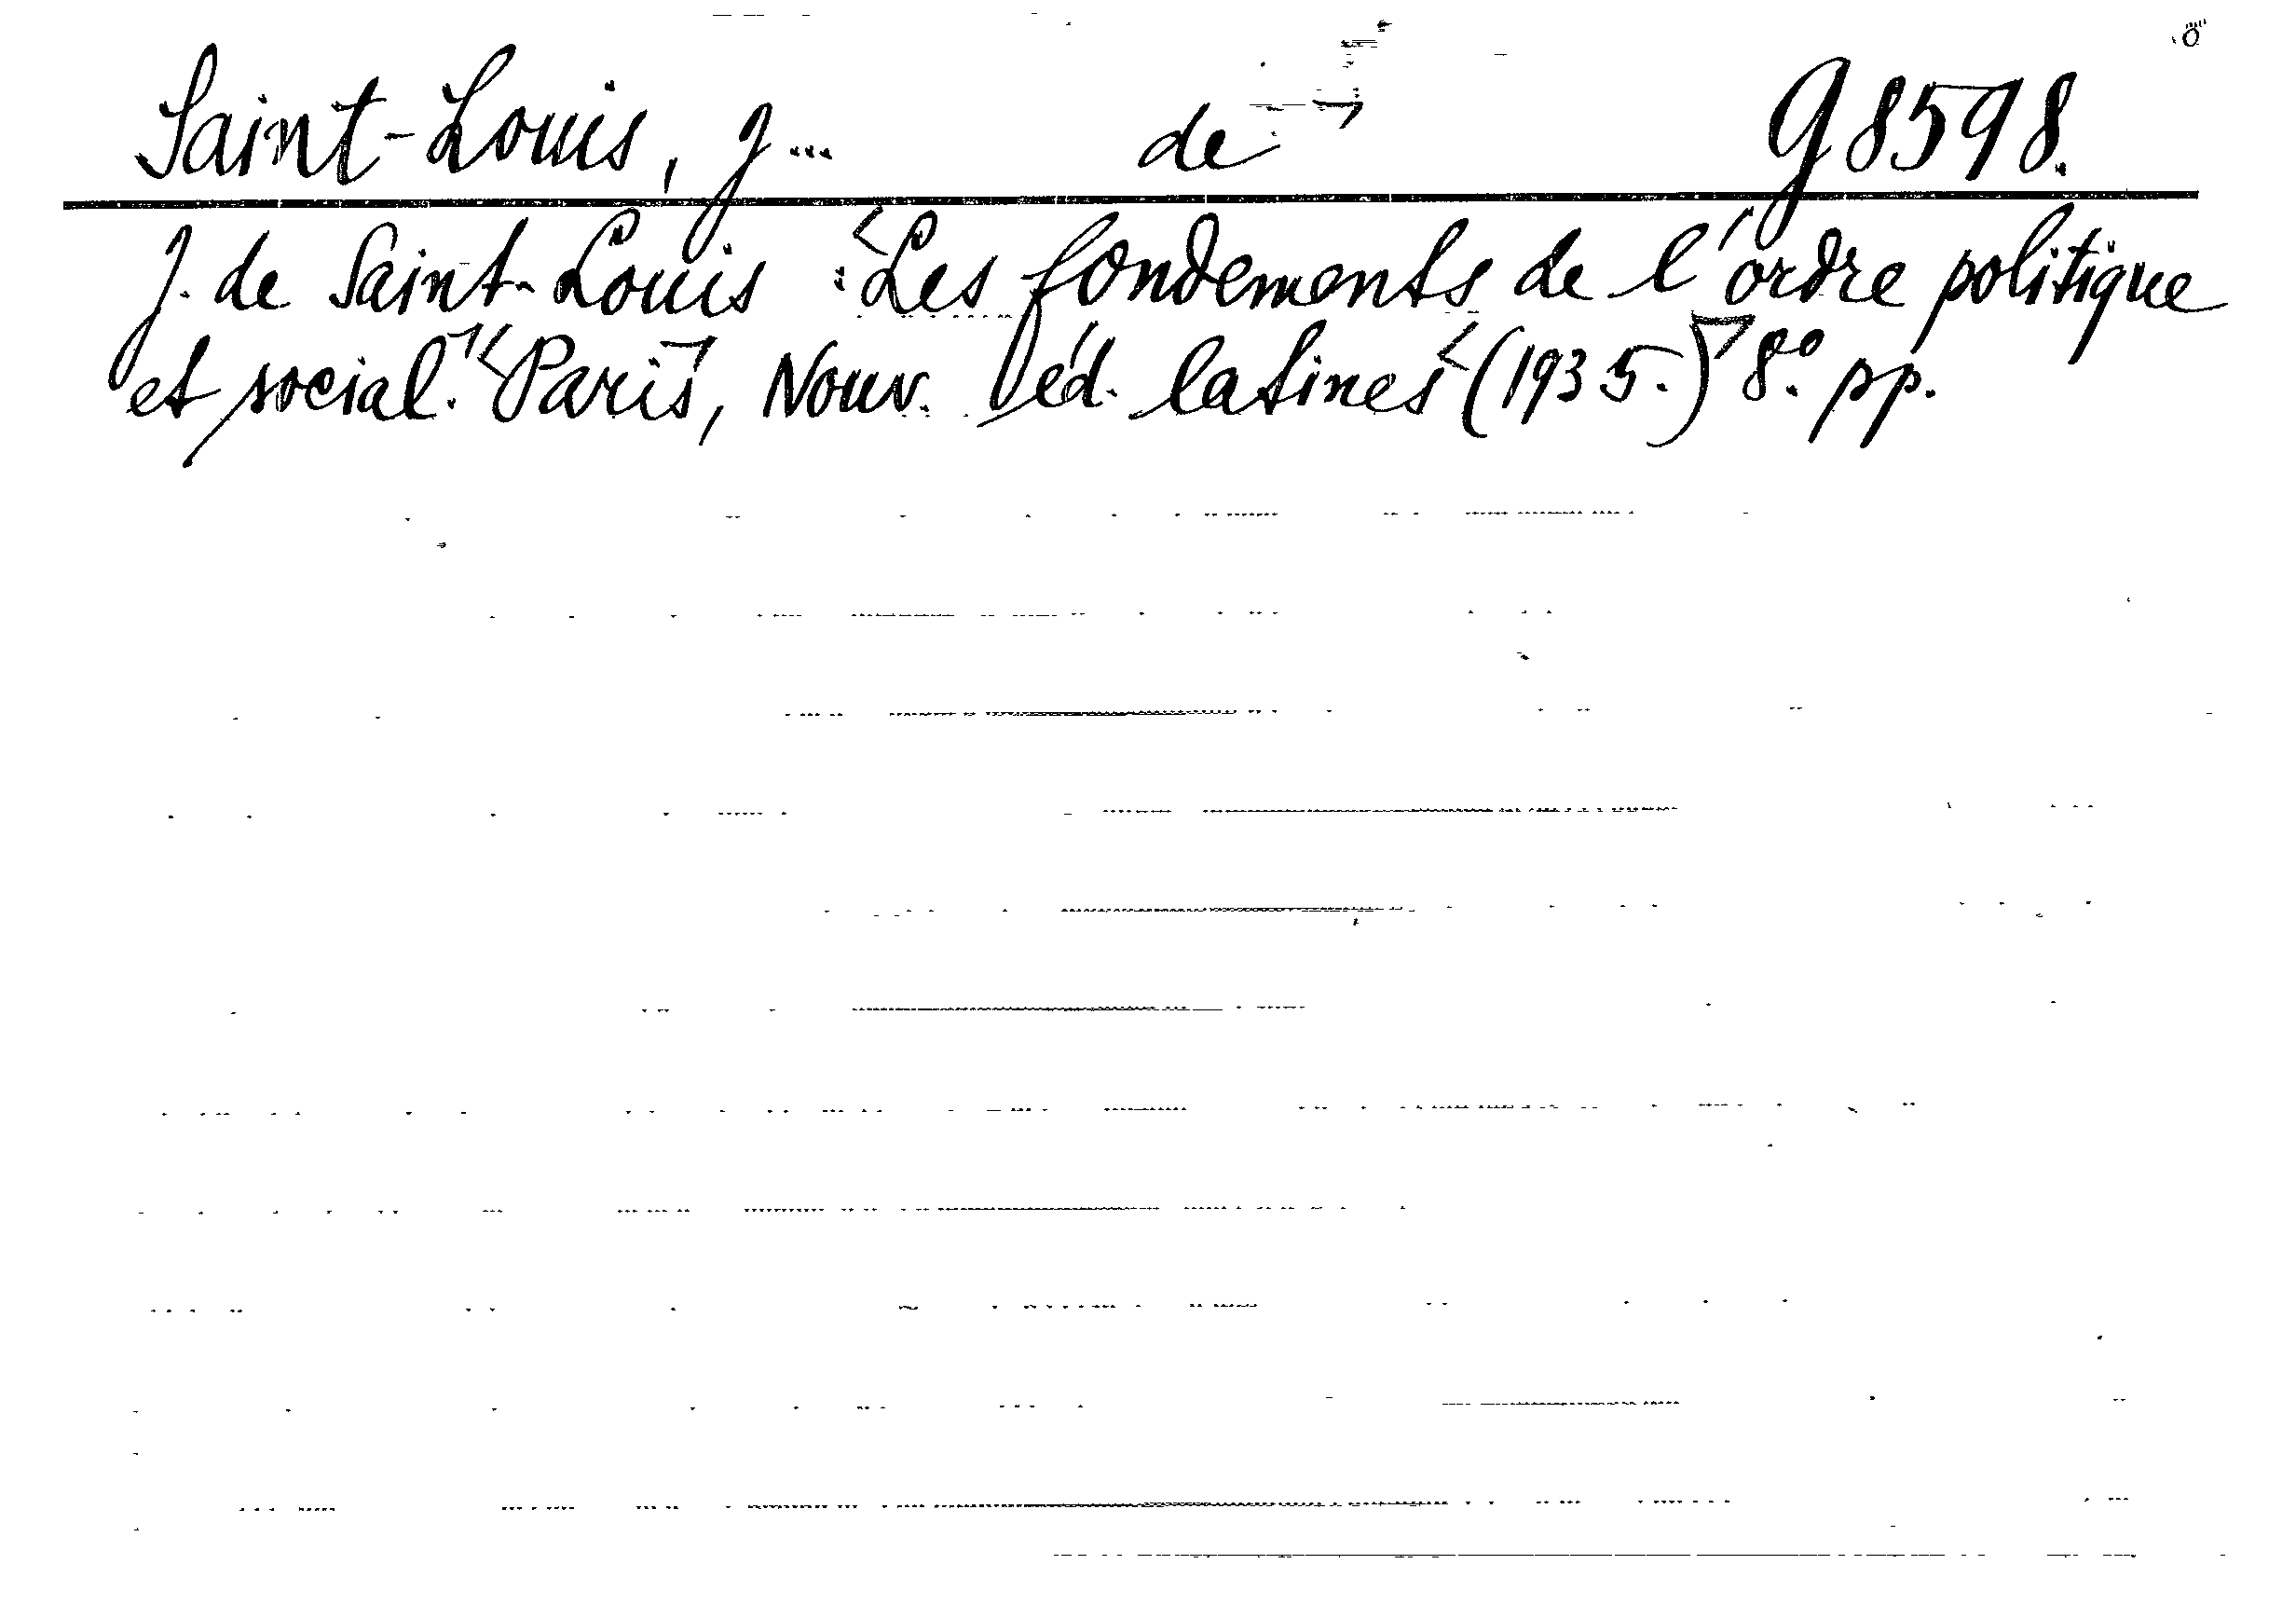 Saint-Louis, J... de G 8598.
J. de Saint-Louis : <Les fondements de l'ordre politique
et social.> <Paris>, Nouv. éd. latines <(1935.)> 8.° pp.